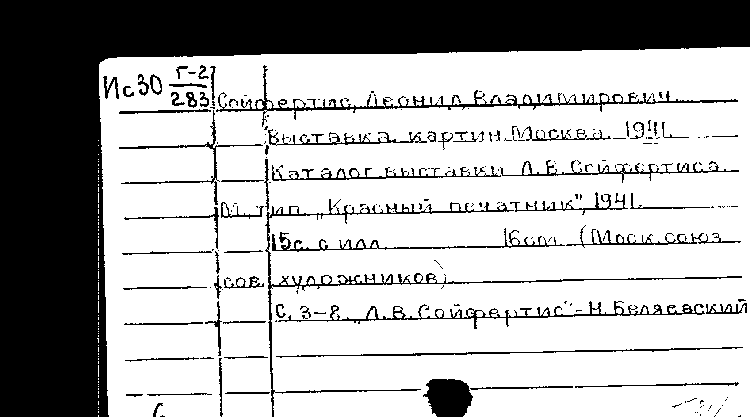 Ис30 Г-2
283
Сойфертис, Леонид Владимирович
Выставка картин. Москва. 1941.
Каталог выставки Л.В. Сойфертиса.
М., тип. „Красный печатник", 1941.
15с. с илл. 16см. (Моск. союз
сов. художников)
С. 3-8 „Л.В. Сойфертис" - Н. Беляевский